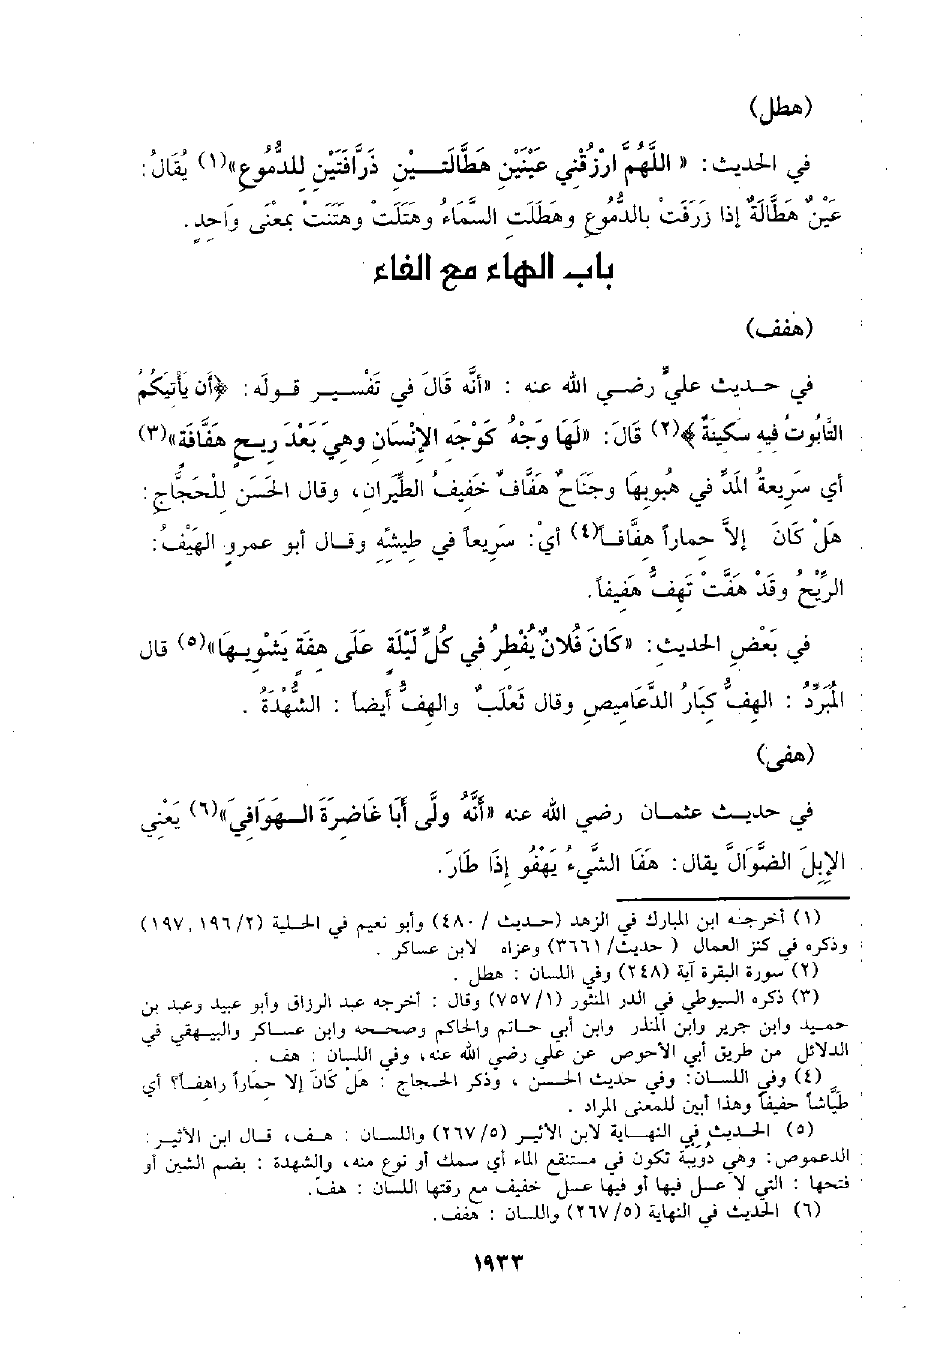 (هطل)
في الحديث: « اللَّهُمَّ ارْزُقْنِي عَيْنَيْنِ هَطَّالَتَـــيْنِ ذَرَّافَتَيْنِ لِلدُّمُوعِ»(١) يُقَالُ:
عَيْنٌ هَطَّالَةٌ إذا زَرَفَتْ بالدُّمُوعِ وهَطَلَتِ السَّمَاءُ وهَتَلَتْ وهَتَنَتْ بِمَعْنَى وَاحِدٍ.
باب الهاء مع الفاء
(هفف)
في حـديث عليٍّ رضـي الله عنه : «أنَّه قَالَ في تَفْسِـير قـولَه: ﴿أَن يَأْتِيَكُمُ
التَّابُوتُ فِيهِ سَكِينَةٌ ﴾(٢) قَالَ: «لَهَا وَجْهٌ كَوَجْهِ الإنْسَانِ وهِيَ بَعْدَ رِيـحٍ هَفَّافَة»(٣)
أي سَرِيعةُ المَدِّ في هبوبِهَا وجَنَاحٌ هَفَّافٌ خَفِيفُ الطَّيَرانِ، وقال الحَسَن لِلْحَجَّاجِ:
هَلْ كَانَ إلاَّ حماراً هفَّافـاً(٤) أيْ: سَرِيعاً في طيشِهِ وقـال أبو عمروٍ الهَيْفُ:
الرِّيْحُ وقَدْ هَفَّتْ تَهِفُّ هَفِيفاً.
في بَعْضِ الحديثِ: «كَانَ فُلانٌ يُفْطِرُ في كُلِّ لَيْلَةٍ عَلَى هِفَةٍ يَشْوِيـهَا»(٥) قال
المُبَرِّدُ : الهِفُّ كِبَارُ الدَّعَامِيصِ وقال ثَعْلَبٌ والهِفُّ أيضاً : الشُّهْدَةُ .
(هفى)
في حديـث عثمـان رضي الله عنه «أَنَّهُ ولَّى أَبَا غَاضِرَةَ الـهَوَافِيَ»(٦) يَعْنِي
الإِبِلَ الضَّوَالَّ يقال: هَفَا الشَّيءُ يَهْفُو إذَا طَارَ.
(١) أخرجـه ابن المبارك في الزهد (حـديث / ٤٨٠) وأبو نعيم في الحلـية (١٩٦/٢ , ١٩٧)
وذكره في كنز العمال ( حديث/ ٣٦٦١) وعزاه لابن عساكر .
(٢) سورة البقرة آية (٢٤٨) وفي اللسان : هطل .
(٣) ذكره السيوطي في الدر المنثور (٧٥٧/١) وقال : أخرجه عبد الرزاق وأبو عبيد وعبد بن
حميـد وابن جرير وابن المنذر وابن أبي حـاتم والحاكم وصـححـه وابن عسـاكر والبيـهقي في
الدلائل من طريق أبي الأحوص عن علي رضي الله عنه، وفي اللسان : هف .
(٤) وفي اللسـان: وفي حديث الحسن ، وذكر الحـجاج : هَلْ كَانَ إلا حِمَاراً هفـافاً؟ أي
طيَّاشاً خفيفاً وهذا أبين للمعنى المراد .
(٥) الحـديث في النهـاية لابن الأثير (٢٦٧/٥) واللسـان : هـفف، قـال ابن الأثيـر:
الدعموص: وهي دُويبَة تكون في مستنقع الماء أي سمك أو نوع منه، والشهدة : بضم الشين أو
فتحها : التي لا عـسل فيها أو فيها عسـل خفيف مع رقتها اللسان : هفّ.
(٦) الحديث في النهاية (٢٦٧/٥) واللسان : هفف.
١٩٣٣